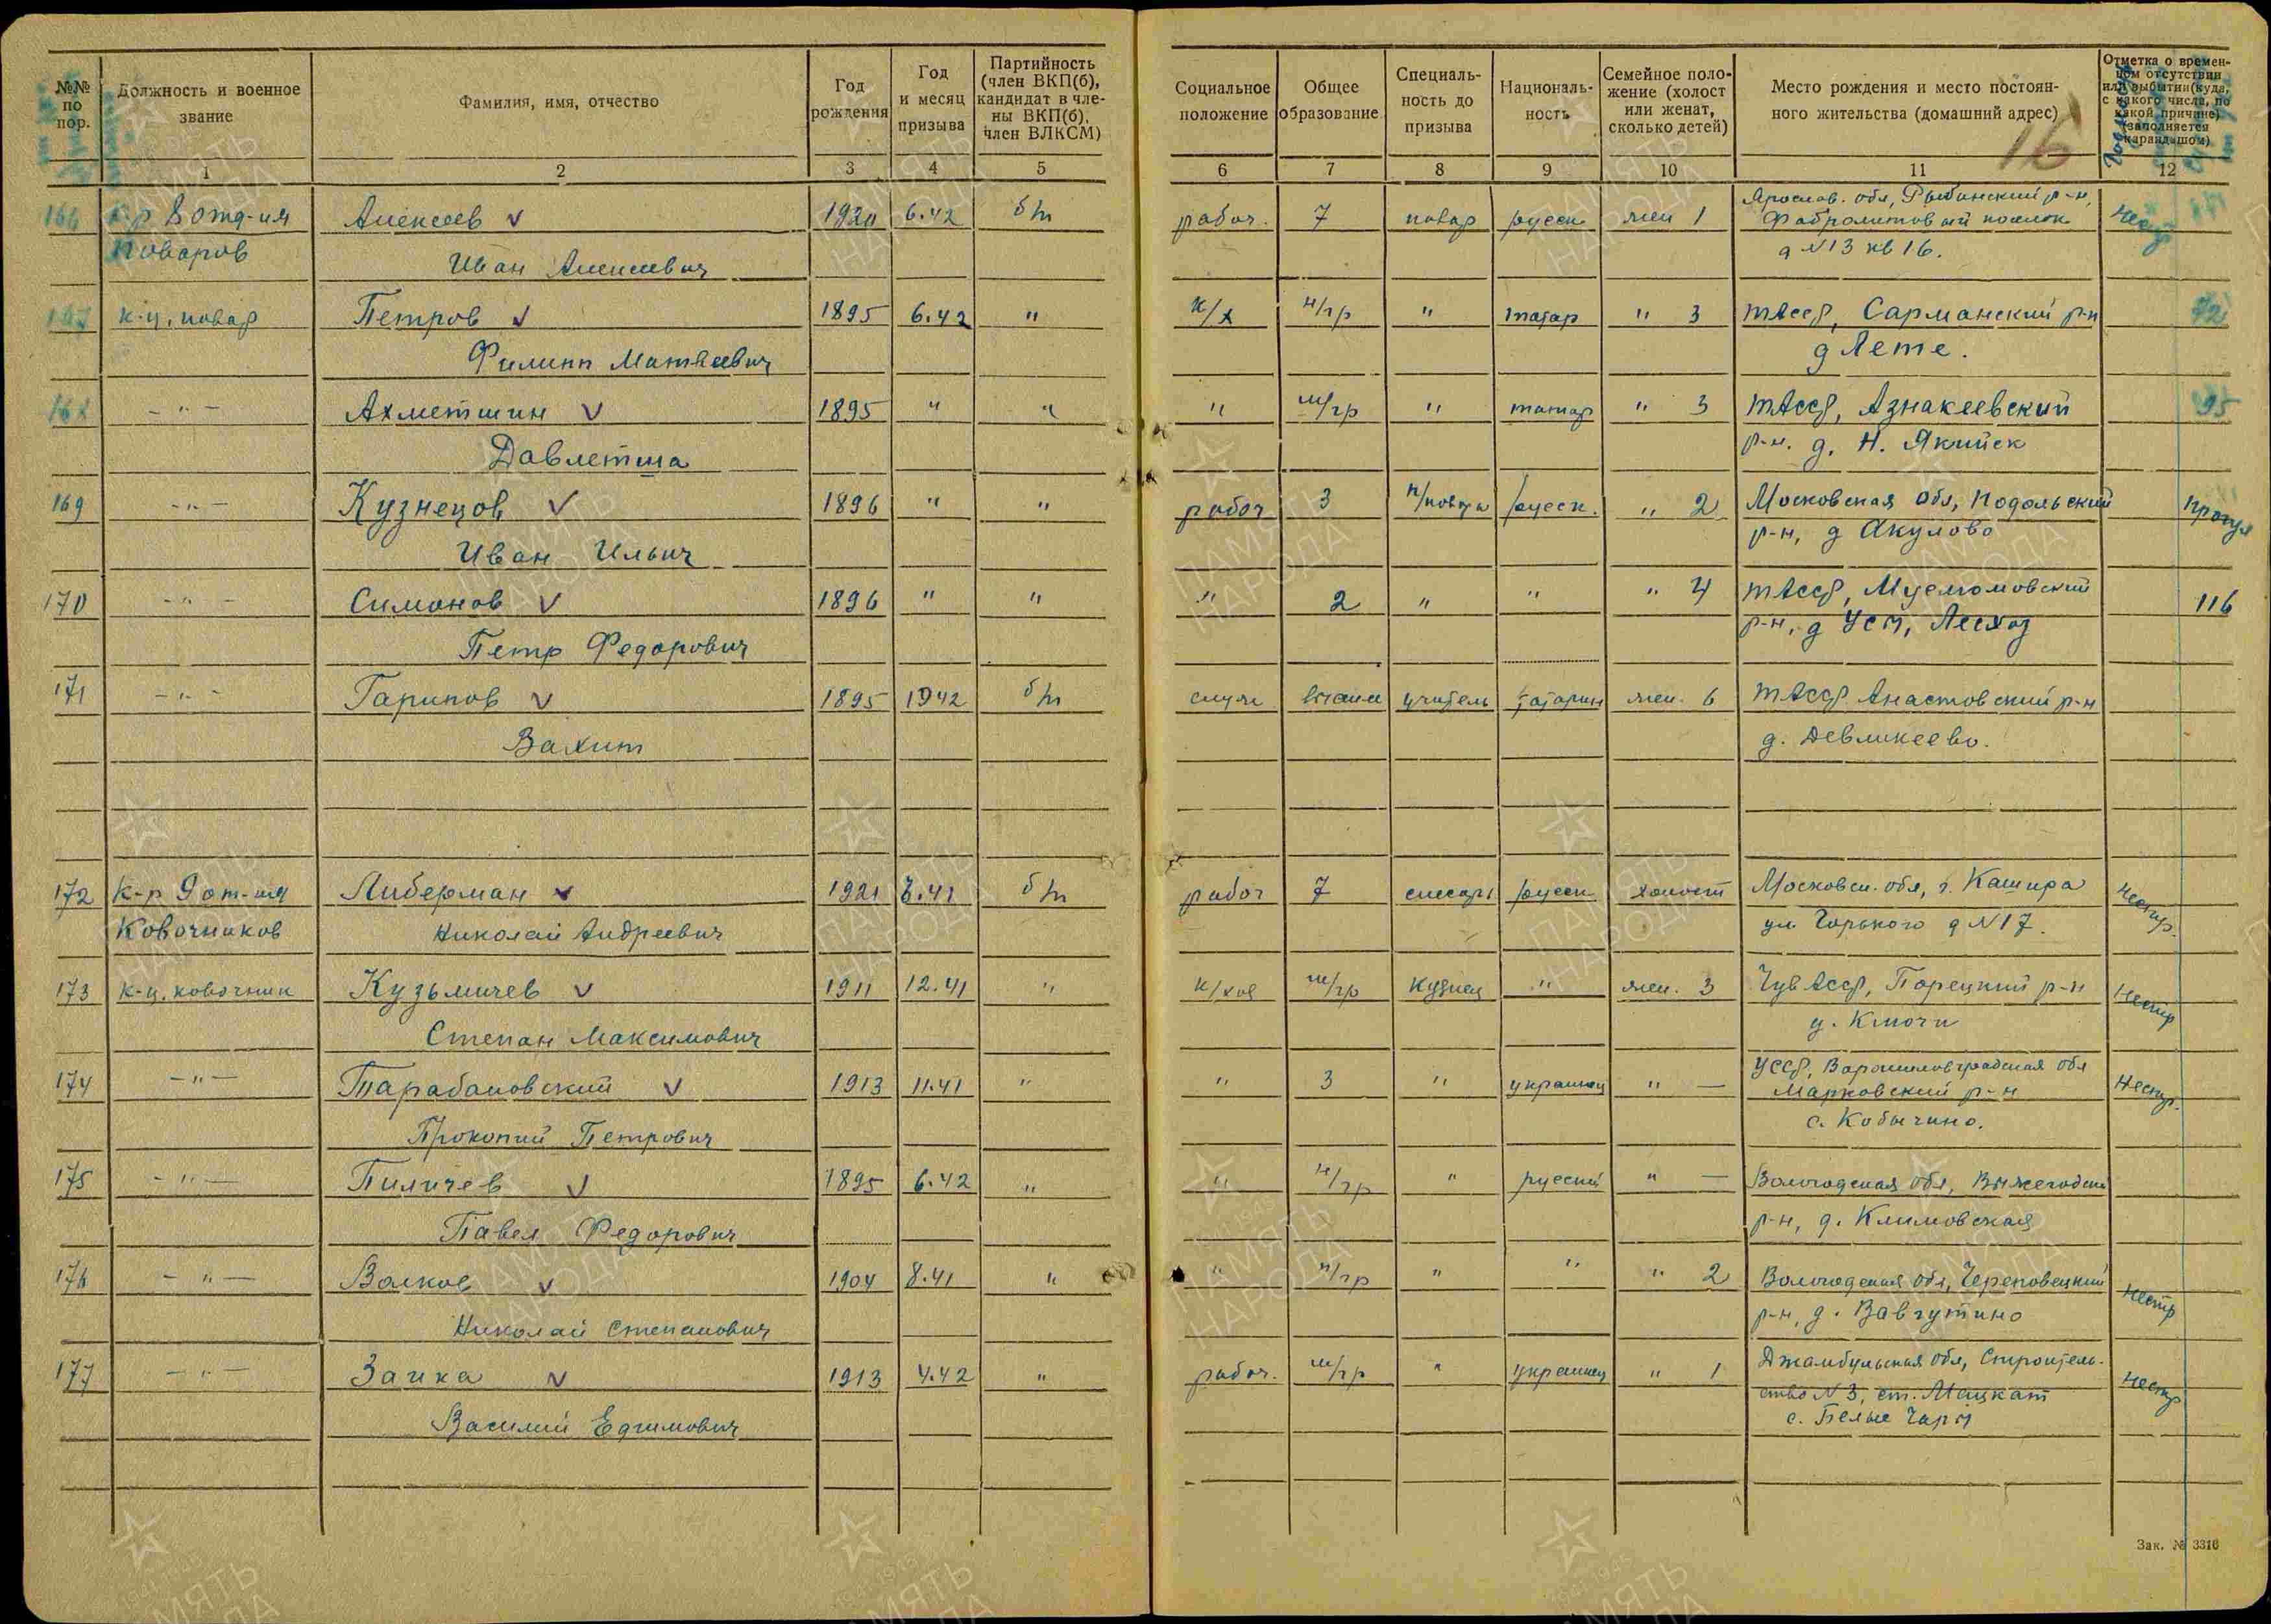 №№ по пор. | Должность и военное звание | Фамилия, имя, отчество | Год рождения | Год и месяц призыва | Партийность (член ВКП(б), кандидат в члены ВКП(б), член ВЛКСМ) | Социальное положение | Общее образование | Специальность до призыва | Национальность | Семейное положение (холост или женат, сколько детей) | Место рождения и место постоянного жительства (домашний адрес) | Отметка о временном отсутствии или выбытии (куда, с какого числа, по какой причине) (заполняется карандашом)
16
1 | 2 | 3 | 4 | 5 | 6 | 7 | 8 | 9 | 10 | 11 | 12
166 | к-р 8 отд-ия | Алексеев | 6.42 | б/п | рабоч. | 7 | повар | русск | жен 1 | Ярослав. обл, Рыбинский р-н,
Поваров | Иван Алексеевич | поселок
д N13 кв 16.
167 | к-ц. повар | Петров | 1895 | 6.42 | " | к/х | н/гр | " | татар | " 3 | ТАССР, Сармановский р-н | 72
Филипп Матвеевич | д Лете.
168 | - " - | Ахметшин | 1895 | " | " | " | м/гр | " | татар | " 3 | ТАССР, Азнакеевский | 95
Давлетша | р-н. д. Н. Якийск
169 | - " - | Кузнецов | 1896 | " | " | рабоч | 3 | русск. | " 2 | Московская обл, Подольский
Иван Ильич | р-н, д Акулово
170 | - " - | Симонов | 1896 | " | " | " | 2 | " | " | " 4 | ТАССР, Муслюмовский | 116
Петр Федорович | р-н, д Усы, Лесхоз
171 | - " - | Гарипов | 1895 | 1942 | б/п | служ | учитель | татарин | жен. 6 | ТАССР Апастовский р-н
Вахит | д. Девликеево.
172 | к-р 9 от-ия | Либерман | 1921 | б/п | рабоч | 7 | слесарь | русск | холост | Московск. обл, г. Кашира | Нестр.
Ковочников | Николай Андреевич | ул. Горького д N17.
173 | к-ц. ковочник | Кузьмичев | 1911 | 12.41 | " | к/хоз | м/гр | кузнец | " | жен. 3 | Чув АССР, Порецкий р-н | Нестр
Степан Максимович | д. Ключи
174 | - " - | Тарабановский | 1913 | 11.41 | " | " | 3 | " | украинец | " — | УССР, Ворошиловградская обл | Нестр.
Прокопий Петрович | Марковский р-н
с. Кобычино.
175 | - " - | Пиличев | 1895 | 6.42 | " | " | н/гр | " | русский | " — | Вологодская обл,
Павел Федорович | р-н, д. Климовская
176 | - " - | Волков | 1904 | 8.41 | " | " | н/гр | " | " | " 2 | Вологодская обл, Череповецкий | Нестр
Николай Степанович | р-н, д. Вавгутино
177 | - " - | Заика | 1913 | 4.42 | " | рабоч. | м/гр | " | украинец | " 1 | Джамбульская обл, Строитель- | Нестр
Василий Ефимович | ство N 3, ст.
с. Белые
Зак. № 3316
ПАМЯТЬ НАРОДА